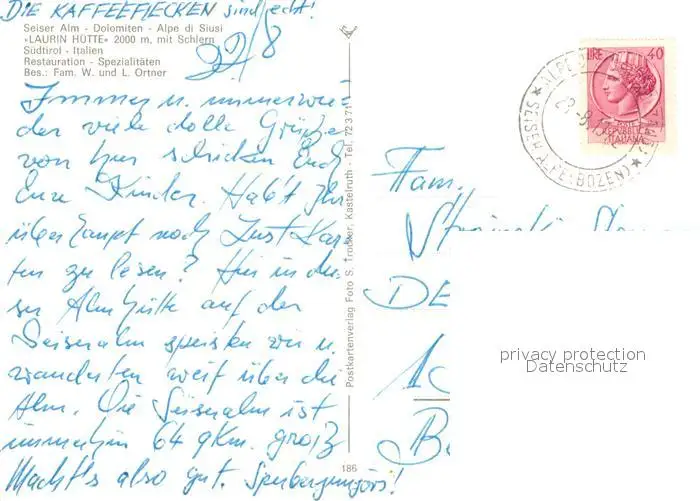 DIE KAFFEEFLECKEN sind echt!
Seiser Alm - Dolomiten - Alpe di Siusi
»LAURIN HÜTTE« 2000 m, mit Schlern
Südtirol - Italien
Restauration - Spezialitäten
Bes.: Fam. W. und L. Ortner
22/8
Immer u. immerwie-
der viele dolle Grüße
von hier schicken Euch
Eure Kinder. Habt Ihr
überhaupt noch Lust Kar-
ten zu lesen? Hier in die-
ser Almhütte auf der
Seiseralm speisten wir u.
wanderten weit über die
Alm. Die Seiseralm ist
immerhin 64 qKm. groß
Macht's also gut.
Postkartenverlag Foto S. Trocker, Kastelruth - Tel. 72371
186
LIRE 40
REPUBBLICA
ITALIANA
SEISER ALPE (BOZEN)
Fam.
DE
privacy protection
Datenschutz